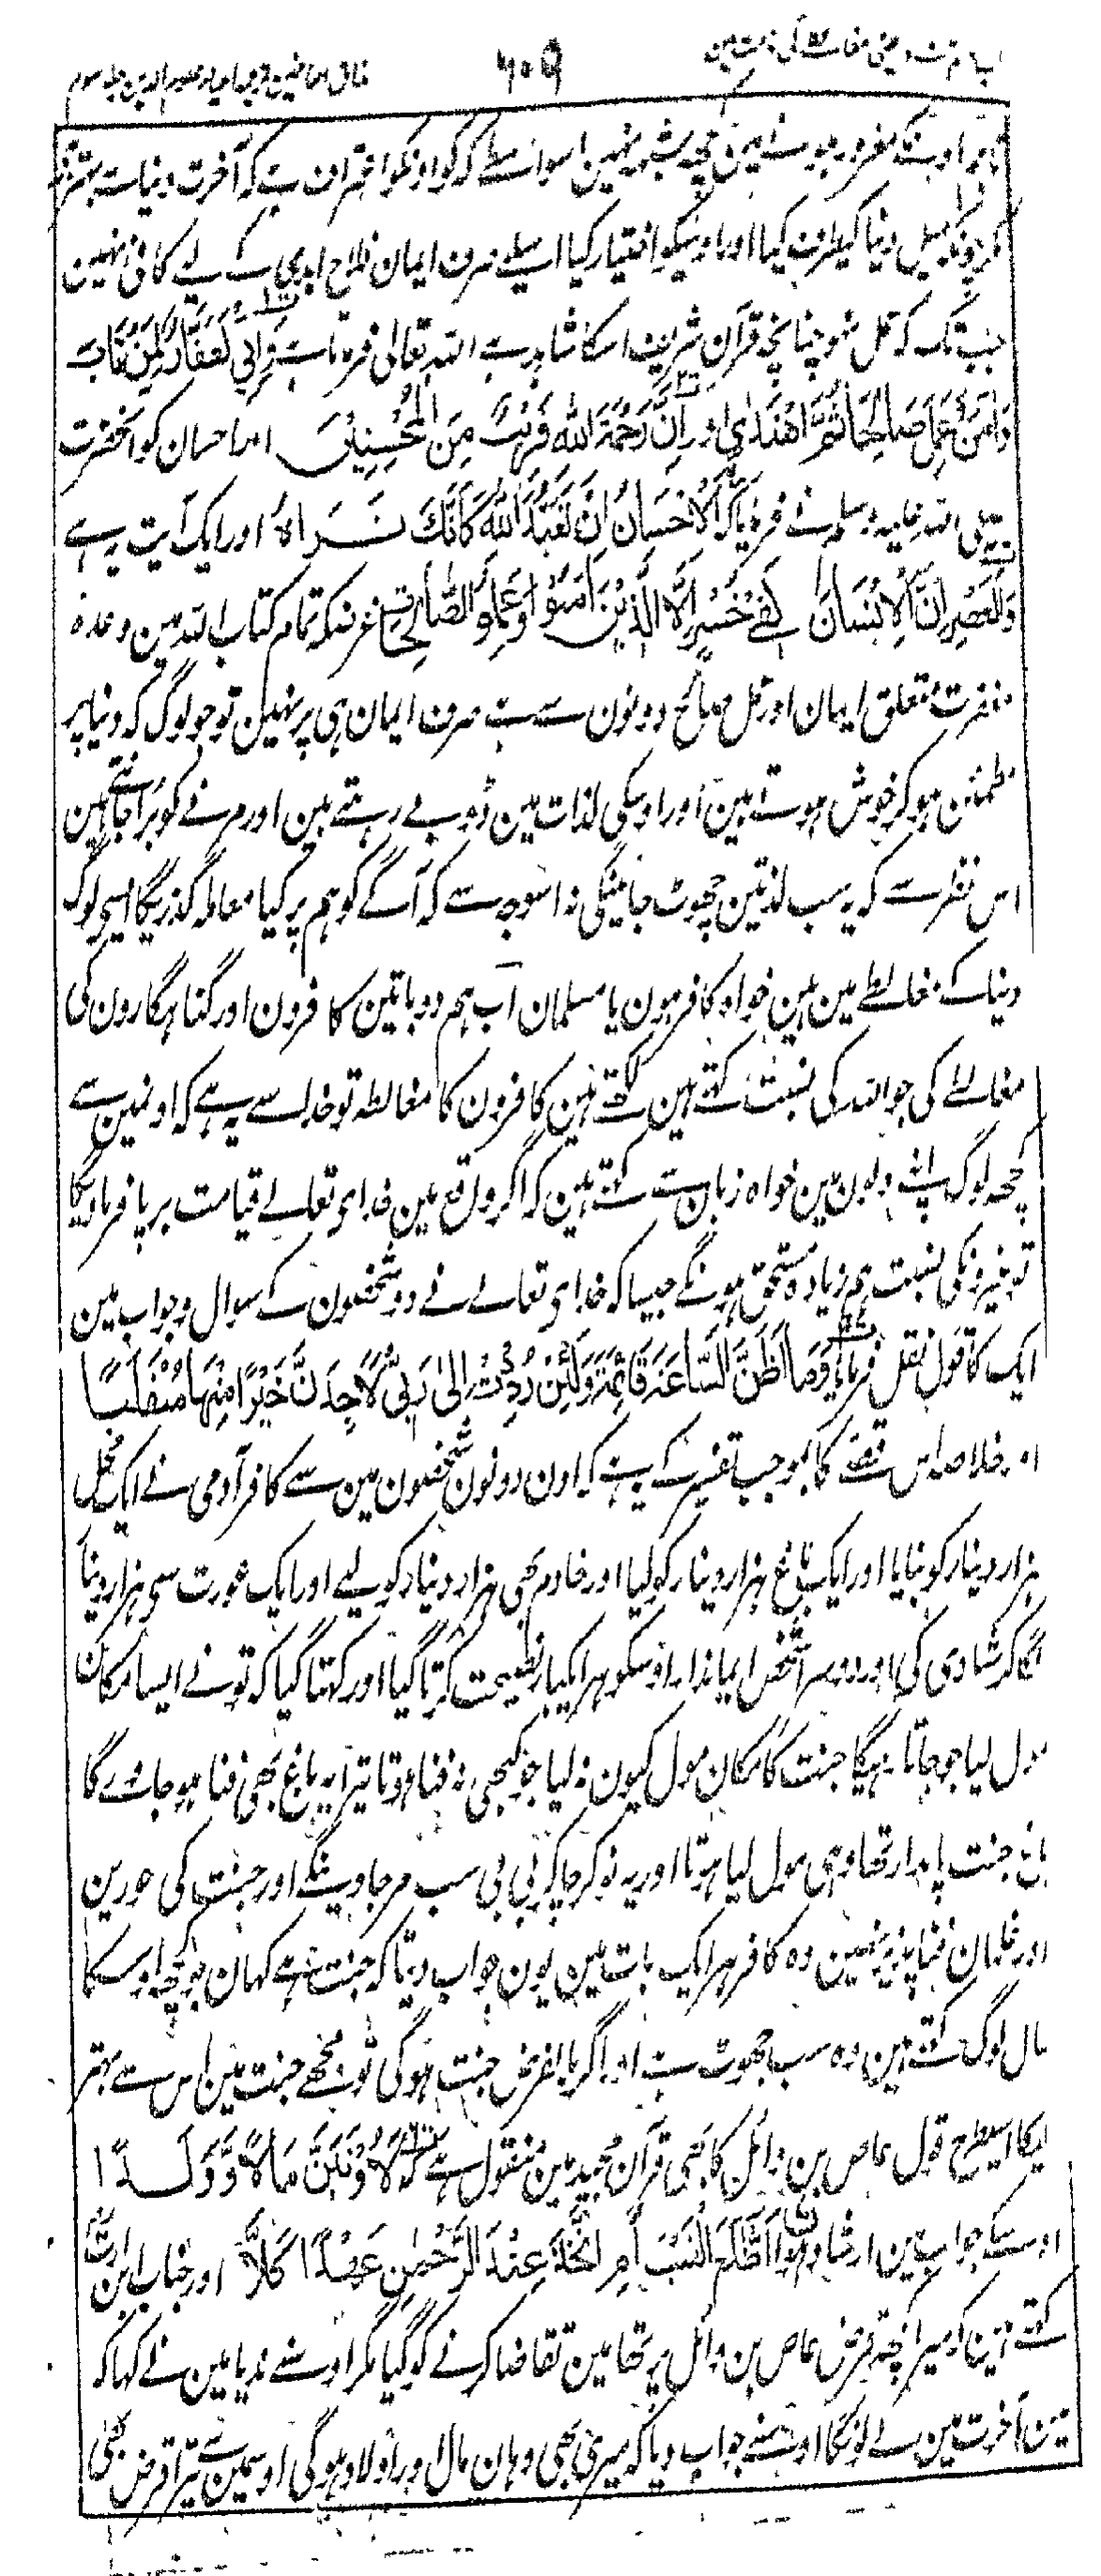 ۶۰۹
مغرور ہونے میں کچھ شبہہ نہیں اسواسطے کہ گو اونکو اعتراف ہے کہ آخرت دنیا سے بہتر ہے
مگر چونکہ میل دنیا کیطرف کیا اور اوسیکو اختیار کیا اسلیے صرف ایمان فلاح ابدی کے لیے کافی نہین
جب تک کہ عمل نہو چنانچہ قرآن شریف اسکا شاہد ہے اللہ تعالی فرماتا ہے وَاِنِّي لَغَفَّارٌ لِّمَنْ تَابَ
وَاٰمَنَ وَعَمِلَ صَالِحًا ثُمَّ اهْتَدٰى اور اِنَّ رَحْمَةَ اللهِ قَرِيْبٌ مِنَ الْمُحْسِنِيْنَ اور احسان کو آنحضرت
صلی اللہ علیہ وسلم نے فرمایا کہ اَلْاِحْسَانُ اَنْ تَعْبُدَ اللهَ كَاَنَّكَ تَرَاهُ اور ایک آیت یہ ہے
وَالْعَصْرِ اِنَّ الْاِنْسَانَ لَفِيْ خُسْرٍ اِلَّا الَّذِيْنَ اٰمَنُوْا وَعَمِلُوا الصَّالِحَاتِ غرضکہ تمام کتاب اللہ مین وعدہ
مغفرت متعلق ایمان اور عمل صالح دونون سے ہے صرف ایمان ہی پر نہین تو جو لوگ کہ دنیا پر
مطمئن ہو کر خوش ہوتے ہین اور اوسکی لذات مین ڈوبے رہتے ہین اور مرنے کو برا جانتے ہین
اس نظر سے کہ یہ سب لذتین چھوٹ جائینگی نہ اسوجہ سے کہ آگے کو ہم پر کیا معاملہ گذریگا ایسے لوگ
دنیا کے مغالطے مین ہین خواہ کافر ہون یا مسلمان اب ہم دو باتین کافرون اور گناہگارون کی
مغالطے کی جو اللہ کی نسبت کرتے ہین لکھتے ہین کافرون کا مغالطہ تو خدا سے یہ ہے کہ اونمین سے
کچھ لوگ اپنے دلون مین خواہ زبان سے کہتے ہین کہ اگر واقع مین خدای تعالے قیامت برپا فرماویگا
تو غیرونکی نسبت ہم زیادہ مستحق ہونگے جیسا کہ خدای تعالے نے دو شخصون کے سوال وجواب مین
ایک کا قول نقل فرمایا وَمَا اَظُنُّ السَّاعَةَ قَائِمَةً وَّلَئِنْ رُّدِدْتُ اِلٰى رَبِّيْ لَاَجِدَنَّ خَيْرًا مِّنْهَا مُنْقَلَبًا
اور خلاصہ اس قصے کا بموجب تفسیر کے یہ ہے کہ اون دونون شخصون مین سے کافر آدمی نے ایک محل
ہزار دینار کو بنایا اور ایک باغ ہزار دینار کو لیا اور خادم بھی ہزار دینار کو لیے اور ایک عورت سی ہزار دینار
لگا کر شادی کی اور دوسرا شخص ایماندار اوسکو ہر ایکبار نصیحت کرتا گیا اور کہتا گیا کہ تو نے ایسا مکان
مول لیا جو جاتا رہیگا جنت کا مکان مول کیون نہ لیا جو کبھی نہ فنا ہوتا تیرا یہ باغ بھی فنا ہو جاوے گا
باغ جنت پایدار تھا وہی مول لیا ہوتا اور یہ نوکر چاکر بی بی سب مر جاوینگے اور جنت کی حورین
اور غلمان فنا پذیر نہین وہ کافر ہر ایک بات مین یون جواب دیتا کہ جنت ہے کہان جو کچھ اوسکا
حال لوگ کہتے ہین وہ سب جھوٹ ہے اور اگر بالفرض جنت ہو گی تو مجھے جنت مین اس سے بہتر
ملیگا اسیطرح قول عاص بن وائل کا بھی قرآن مجید مین منقول ہے کہ لَاُوْتَيَنَّ مَالًا وَّوَلَدًا
اوسکے جواب مین ارشاد ہوا اَطَّلَعَ الْغَيْبَ اَمِ اتَّخَذَ عِنْدَ الرَّحْمٰنِ عَهْدًا كَلَّا اور خباب ابن ارت
کہتے ہین کہ میرا کچھ قرض عاص بن وائل پر تھا مین تقاضا کرنے کو گیا مگر اوسنے ندیا مین نے کہا کہ
مین آخرت مین لے لونگا اوسنے جواب دیا کہ میری بھی وہان مال اور اولاد ہو گی اوسمین سے تیرا قرض بھی